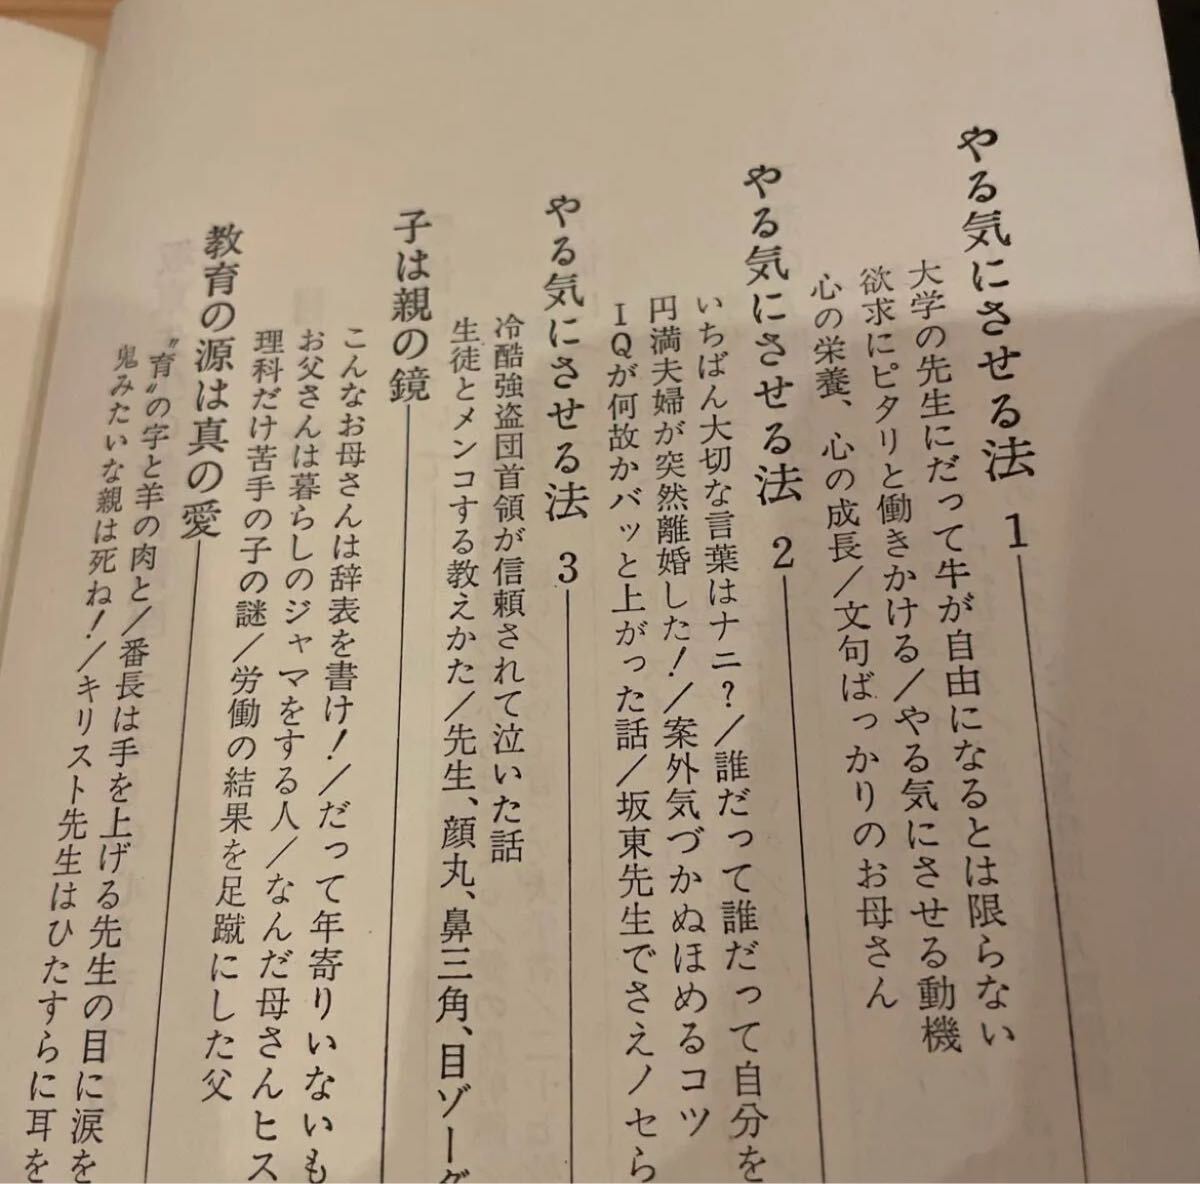 やる気にさせる法 1
大学の先生にだって牛が自由になるとは限らない
欲求にピタリと働きかける/やる気にさせる動機
心の栄養、心の成長/文句ばっかりのお母さん
やる気にさせる法 2
いちばん大切な言葉はナニ?/誰だって誰だって自分を
円満夫婦が突然離婚した!/案外気づかぬほめるコツ
IQが何故かバッと上がった話/坂東先生でさえノセら
やる気にさせる法 3
冷酷強盗団首領が信頼されて泣いた話
生徒とメンコする教えかた/先生、顔丸、鼻三角、目ゾーグ
子は親の鏡
こんなお母さんは辞表を書け!/だって年寄りいないも
お父さんは暮らしのジャマをする人/なんだ母さんヒス
理科だけ苦手の子の謎/労働の結果を足蹴にした父
教育の源は真の愛
〝育〟の字と羊の肉と/番長は手を上げる先生の目に涙を
鬼みたいな親は死ね!/キリスト先生はひたすらに耳を